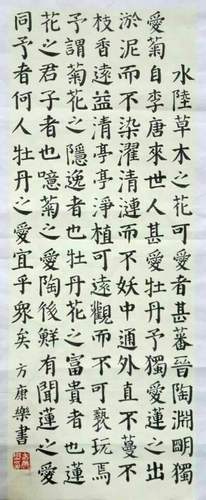 水陸草木之花可愛者甚蕃晉陶淵明獨
愛菊自李唐來世人甚愛牡丹予獨愛蓮之出
淤泥而不染濯清漣而不妖中通外直不蔓不
枝香遠益清亭亭淨植可遠觀而不可褻玩焉
予謂菊花之隱逸者也牡丹花之富貴者也蓮
花之君子者也噫菊之愛陶後鮮有聞蓮之愛
同予者何人牡丹之愛宜乎衆矣 方康樂書